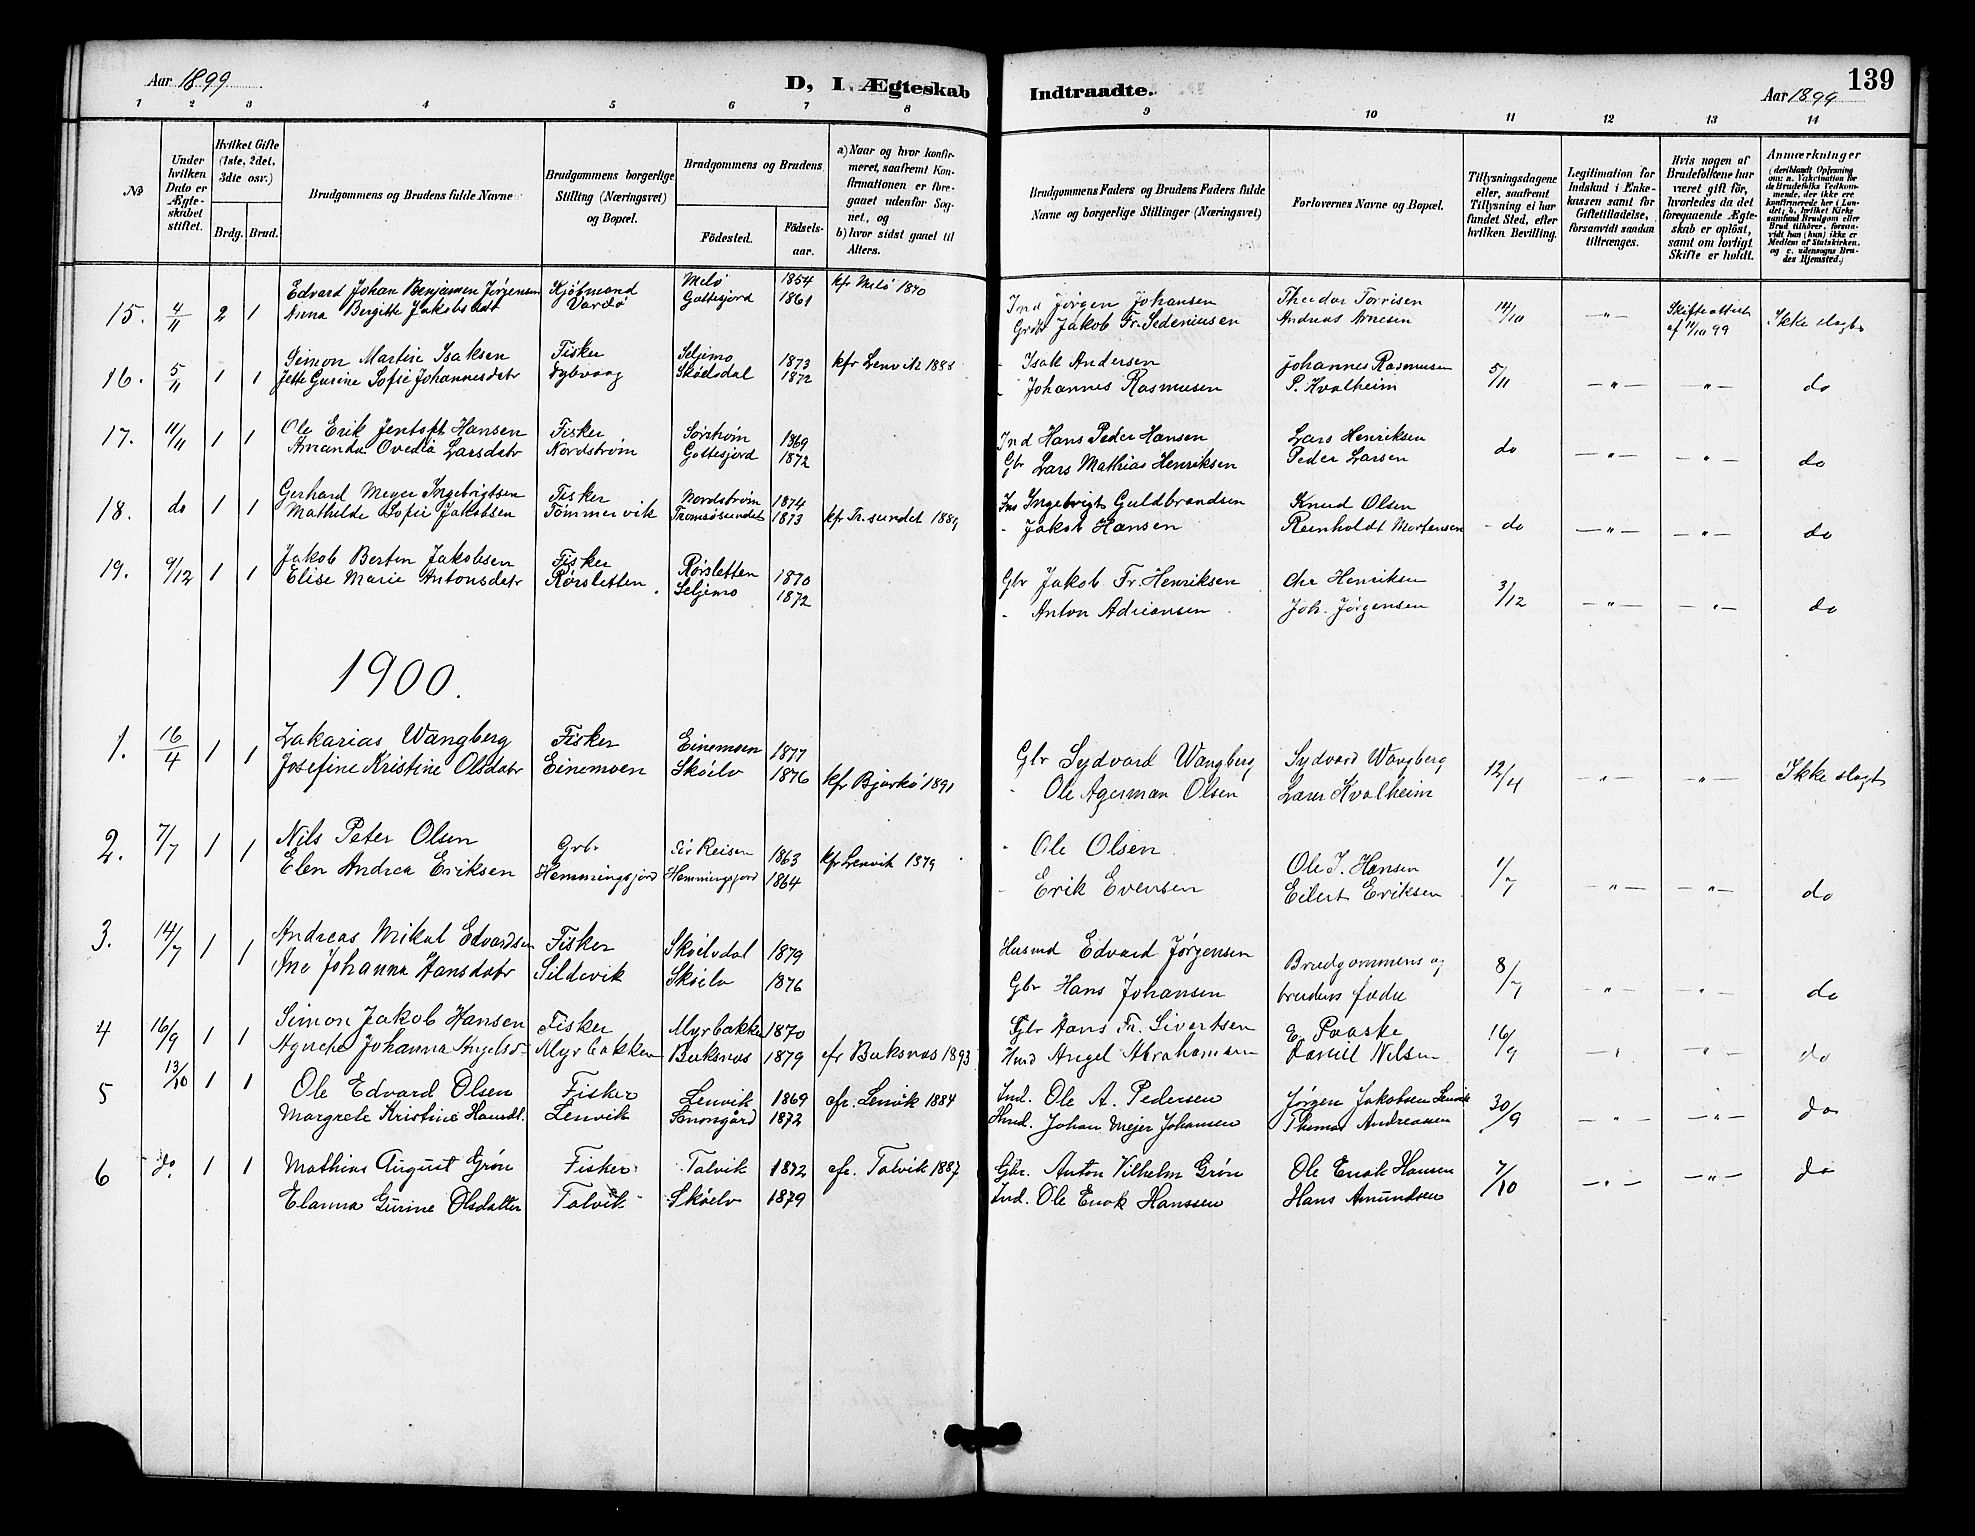 Aar 1899
D, I Ægteskab
Indtraadte.
139
Aar 1899
1 2 3 4 5 6 7 8 9 10 11 12 13 14
№
Under hvilken Dato er Ægteskabet stiftet.
Hvilket Gifte (1ste, 2det, 3die osv.)
Brdg. Brud.
Brudgommens og Brudens fulde Navne
Brudgommens borgerlige Stilling (Næringsvei) og Bopæl.
Brudgommens og Brudens
Födested.
Födselsaar.
a) Naar og hvor konfirmeret, saafremt Konfirmationen er foregaaet udenfor Sognet, og
b) hvor sidst gaaet til Alters.
Brudgommens Faders og Brudens Faders fulde Navne og borgerlige Stillinger (Næringsvei)
Forlovernes Navne og Bopæl.
Tillysningsdagene eller, saafremt Tillysning ei har fundet Sted, efter hvilken Bevilling.
Legitimation for Indskud i Enkekassen samt for Giftetilladelse, forsaavidt saadan tiltrænges.
Hvis nogen af Brudefolkene har været gift för, hvorledes da det foregaaende Ægteskab er oplöst, samt om lovligt Skifte er holdt.
Anmærkninger (deriblandt Oplysning om: a. Vakcination for de Brudefolks Vedkommende, der ikke ere konfirmerede her i Landet; b. hvilket Kirkesamfund Brudgom eller Brud tilhörer, forsaavidt han (hun) ikke er Medlem af Statskirken, og c. udensogns Brudes Hjemsted.)
15. 4/11 2 1 Edvard Johan Benjamin Jørgensen Kjøbmand Melö 1854 kfr Melö 1870 Ind Jørgen Johansen Theodor Torrisen 14/10 — " — Skifteattest Ikke slegt
Anna Bergitte Jakobsdatr Vardø Gottesjord 1861 Grbr Jakob Fr. Sedeniusen Andreas Arnesen af 11/10 99
16. 5/11 1 1 Simon Martin Isaksen Fisker Seljemo 1873 kfr Lenvik 1888 - Isak Andersen Johannes Rasmusen 5/11 — " — — " — do
Jette Gurine Sofie Johannesdatr Dybvaag Skødsdal 1872 - Johannes Rasmusen P. Kvalheim
17. 11/11 1 1 Ole Erik Jentoft Hansen Fisker Sørstrøm 1869 Ind Hans Peder Hansen Lars Henriksen do — " — — " — do
Amanda Ovedia Larsdatr Nordstrøm Gottesjord 1872 Gbr Lars Mathias Henriksen Peder Larsen
18. do 1 1 Gerhard Meyer Ingebrigtsen Fisker Nordstrøm 1874 Ins Ingebrigt Guldbrandsen Knud Olsen - do — " — — " — do
Mathilde Sofie Jakobsen Tømmervik Tromsøsundet 1873 kfr Tr.sundet 1889 - Jakob Hansen Reinholdt Mortensen
19. 9/12 1 1 Jakob Berten Jakobsen Fisker Rørsletten 1870 Gbr Jakob Fr. Henriksen Chr Henriksen 3/12 — " — — " — do
Elise Marie Antonsdatr Rørsletten. Seljemo 1872 - Anton Adriansen Joh. Jørgensen
1900.
1. 16/4 1 1 Zakarias Wangberg Fisker Einemoen 1877 Gbr Sydvard Wangberg Sydvard Wangberg 12/4 — " — — " — Ikke slegt
Josefine Kristine Olsdatr Einemoen Skøelv 1876 kfr Bjarkö 1891 " Ole Agerman Olsen Lærer Kvalheim
2. 7/7 1 1 Nils Peter Olsen Grbr Sør Reisen 1863 kfr Lenvik 1879 " Ole Olsen Ole J. Hansen 1/7 — " — — " — do
Elen Andrea Eriksen Hemmingsjord Hemmingsjord 1864 - Erik Evensen Eilert Eriksen
3. 14/7 1 1 Andreas Mikal Edvardsen Fisker Skøelvdal 1879 Husmd Edvard Jørgensen Brudgommens og 8/7 — " — — " — do
Ane Johanna Hansdatr Sildevik Skøelv 1876 Gbr Hans Johansen brudens fædre
4 16/9 1 1 Simon Jakob Hansen Fisker Myrbakken 1870 Gbr Hans Fr. Sivertsen E. Paaske 16/9 — " — — " — do
Johanna Myrbakken Buksnes 1879 cfr Buksnes 1893 Husd Angel Abrahamsen Daniel Nilsen
5 13/10 1 1 Ole Edvard Olsen Fisker Lenvik 1869 cfr. Lenvik 1884 Ind. Ole A. Pedersen Jørgen Jakobsen Lenvik 30/9 — " — — " — do
Margrete Kristine Lenvik 1872 Husd. Johan Mejer Johansen Thomas Andreassen
6 do. 1 1 Mathias August Grøn Fisker Talvik 1872 cfr. Talvik 1887 Gbr. Anton Vilhelm Grøn Ole Enok Hansen 7/10 — " — — " — do
Elanna Gurine Olsdatter Talvik Skøelv 1879 Ind. Ole Enok Hanssen Hans Amundsen